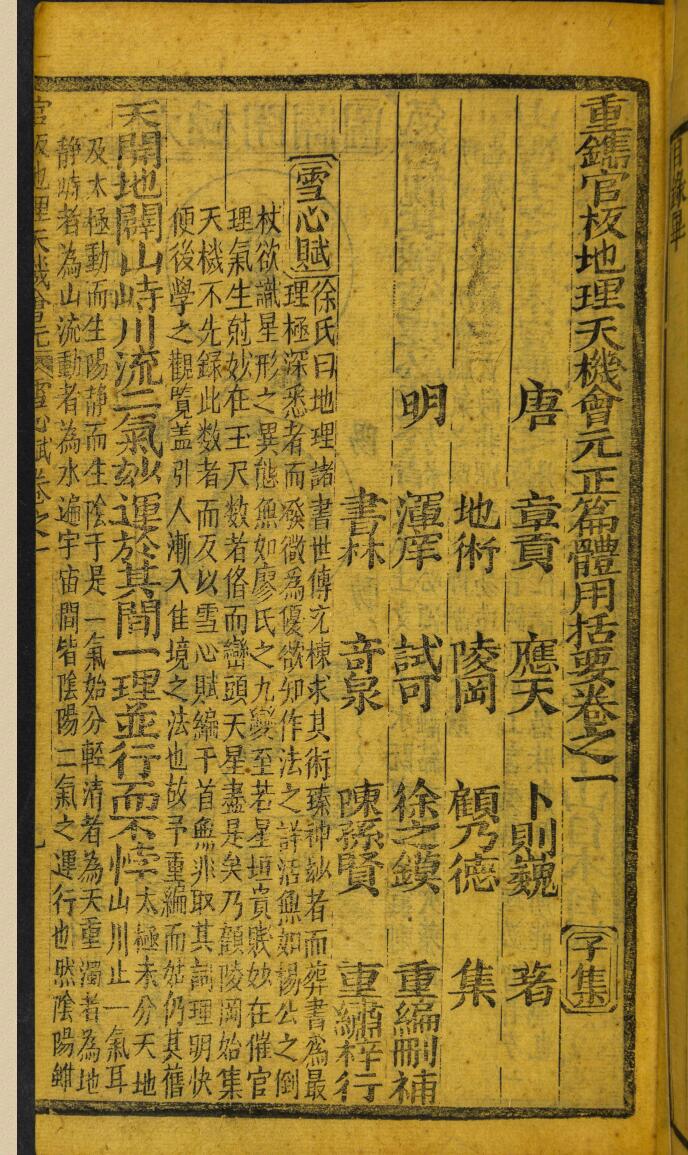 重鐫官板地理天機會元正篇體用括要卷之一 子集
唐 章貢 應天 卜則巍 著
地術 陵岡 顧乃德 集
明 渾厈 試可 徐之鏌 重編刪補
書林 竒泉 陳孫賢 重繡梓行
雪心賦 徐氏曰地理諸書世傳充棟求其術臻神玅者而葬書爲最
理極深悉者而發微爲優欲知作法之詳活無如楊公之倒
杖欲識星形之異態無如廖氏之九變至若星垣貴賤妙在催官
理氣生尅妙在玉尺數者俻而巒頭天星盡是矣乃顧陵岡始集
天機不先錄此数者而及以雪心賦編于首無非取其詞理明快
便後學之觀覧盖引人漸入佳境之法也故予重編而姑仍其舊
天開地闢山峙川流二氣玅運於其間一理並行而不悖 太極未分天地山川止一氣耳
及太極動而生陽静而生陰于是一氣始分輕清者為天重濁者為地
静峙者為山流動者為水遍宇宙間皆陰陽二氣之運行也然陰陽雖
官板地理天機會元 雪心賦卷之一
目錄畢